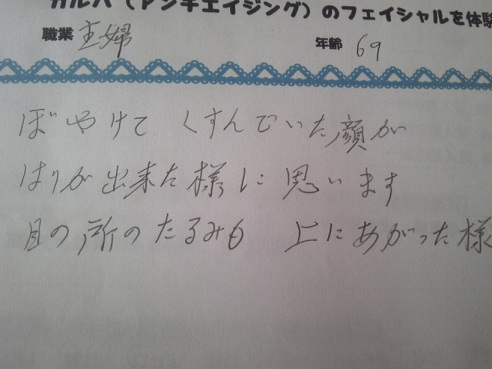 ガルバ（アンチエイジング）のフェイシャルを体験
職業 主婦 年齢 69
ぼやけて くすんでいた顔が
はりが出来た様に 思います
目の所のたるみも 上にあがった様